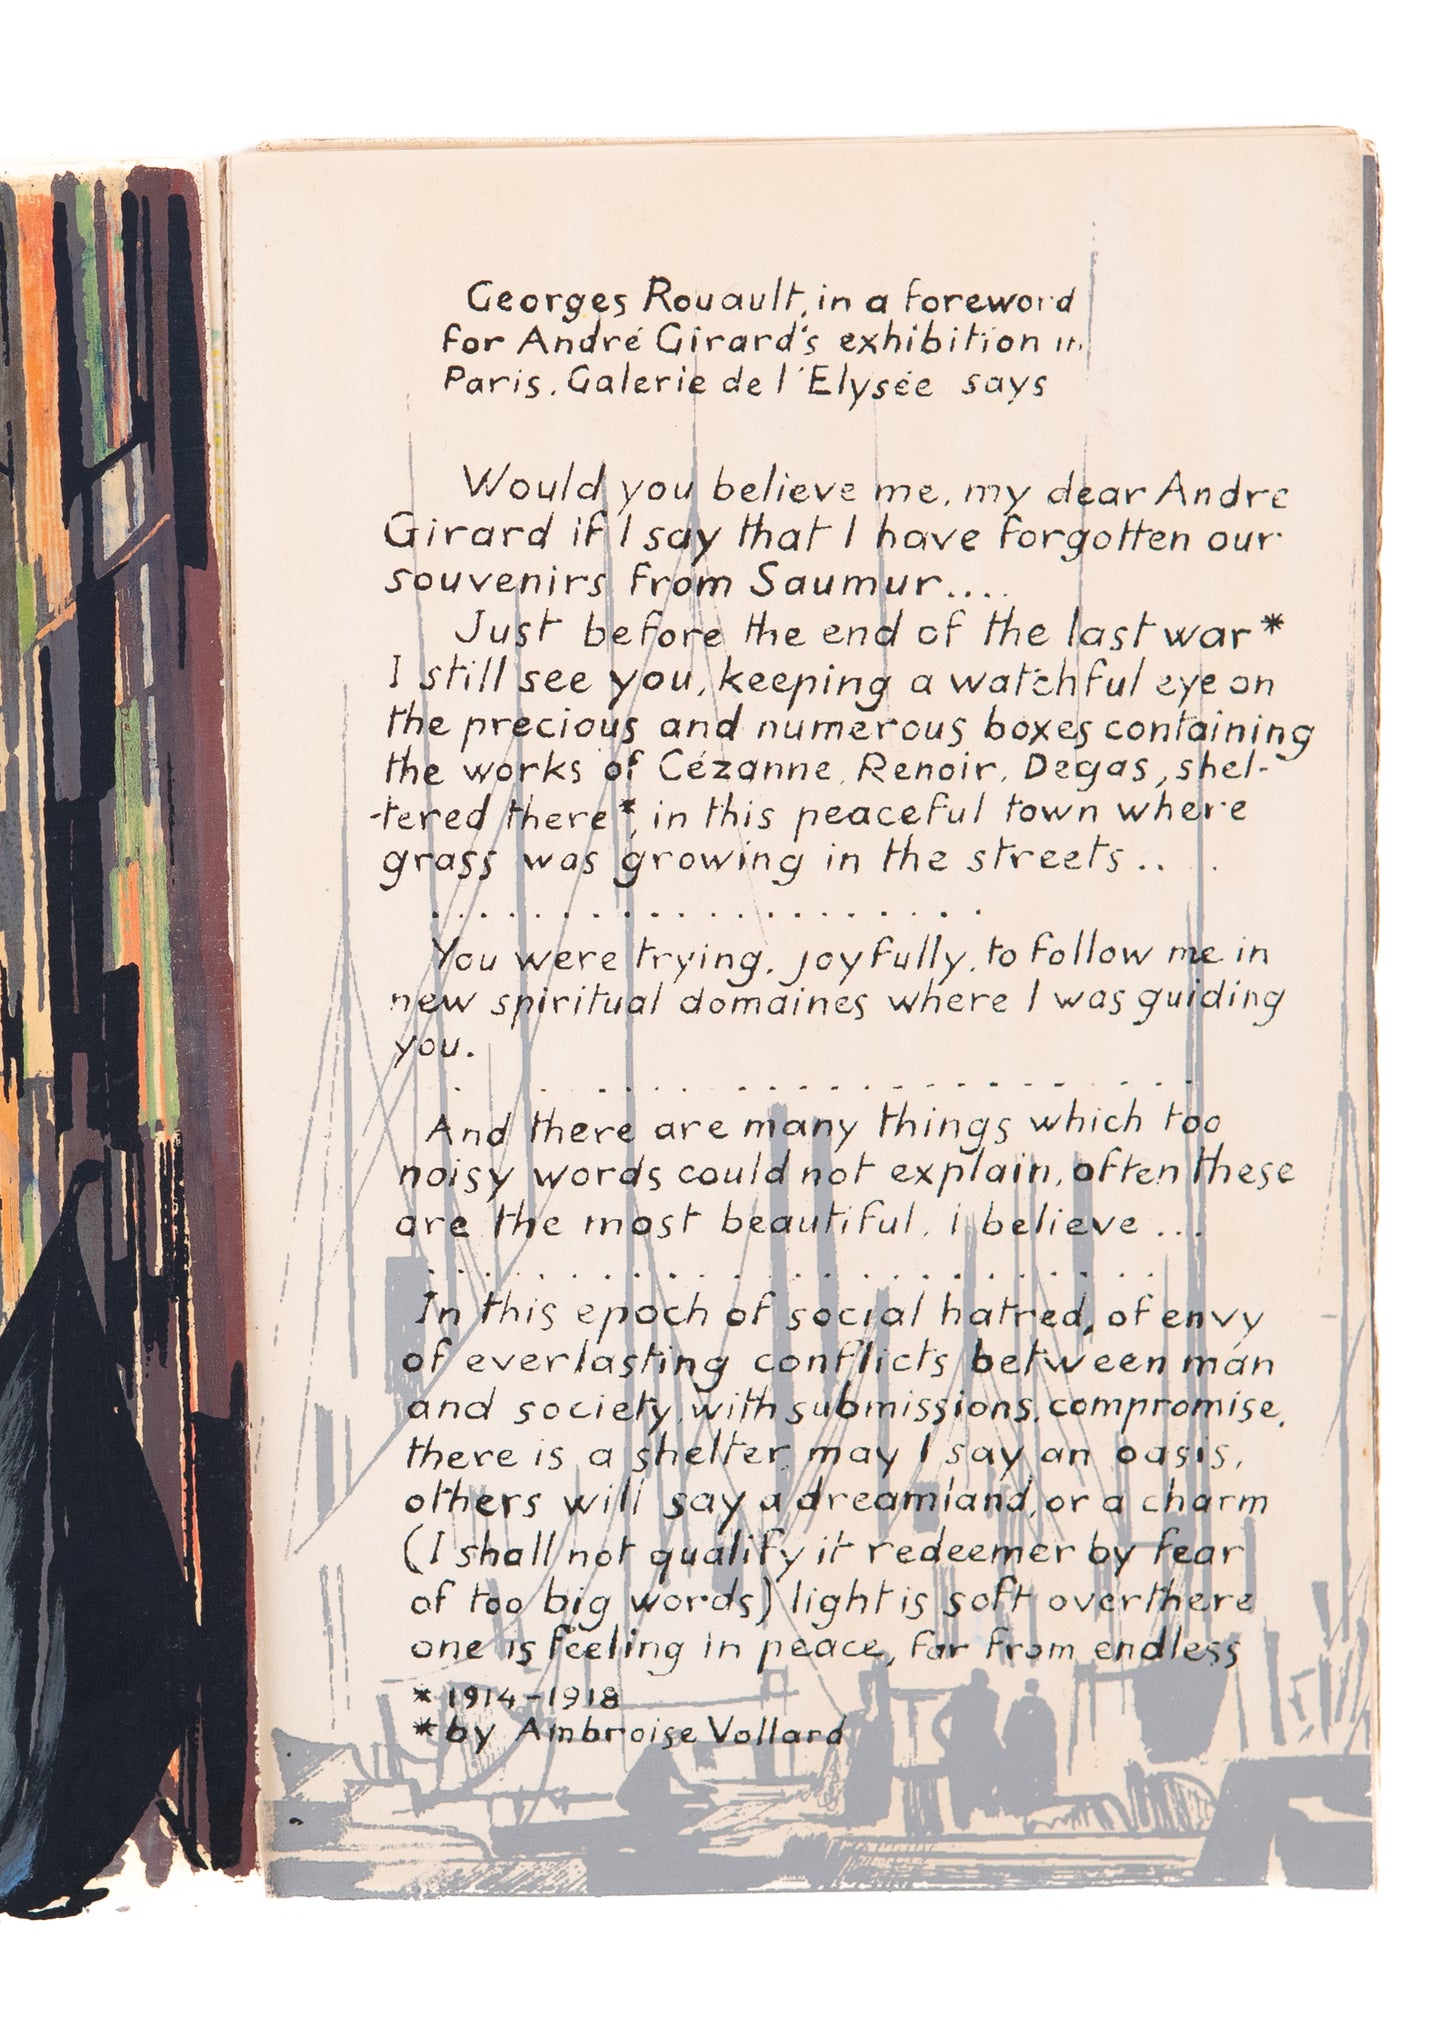 Georges Rouault, in a foreword
for André Girard's exhibition in
Paris. Galerie de l'Elysée says
Would you believe me, my dear André
Girard if I say that I have forgotten our
souvenirs from Saumur....
Just before the end of the last war*
I still see you, keeping a watchful eye on
the precious and numerous boxes containing
the works of Cézanne, Renoir, Degas, shel-
-tered there*, in this peaceful town where
grass was growing in the streets...
. . . . . . . . . . . . . . . . . . .
You were trying, joyfully, to follow me in
new spiritual domaines where I was guiding
you.
. . . . . . . . . . . . . . . . . . .
And there are many things which too
noisy words could not explain, often these
are the most beautiful, I believe ...
. . . . . . . . . . . . . . . . . . .
In this epoch of social hatred, of envy
of everlasting conflicts between man
and society, with submissions, compromise,
there is a shelter, may I say an oasis,
others will say a dreamland, or a charm
(I shall not qualify it redeemer by fear
of too big words) light is soft overthere
one is feeling in peace, far from endless
* 1914-1918
* by Ambroise Vollard